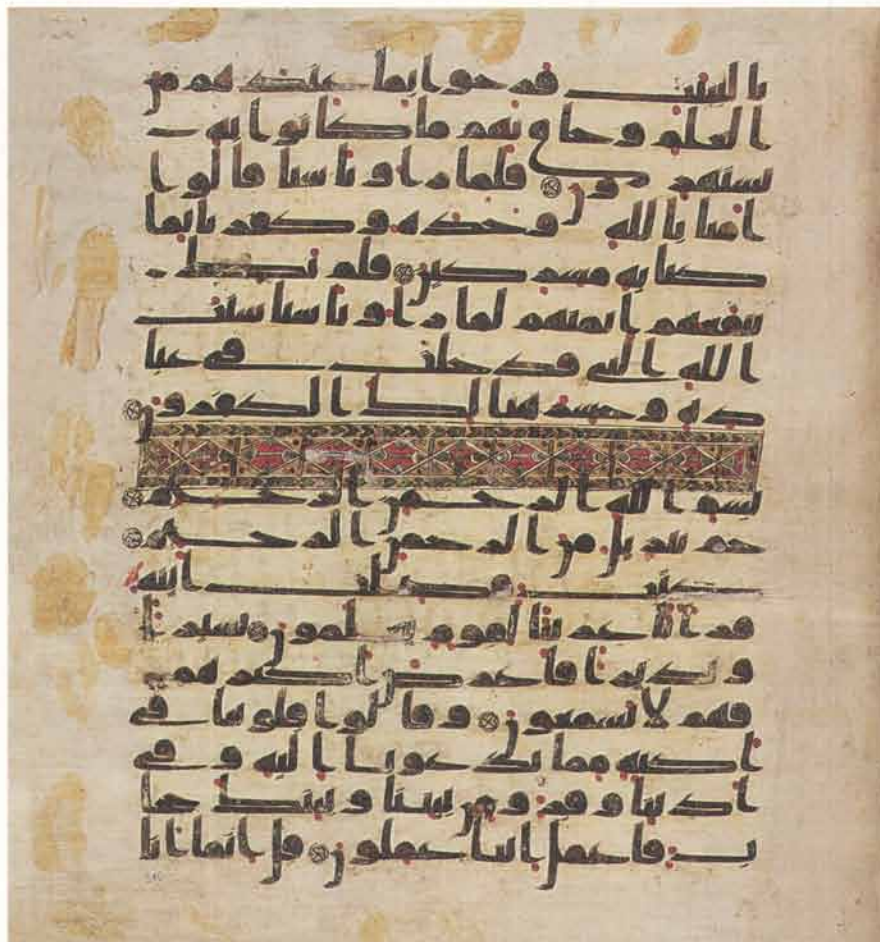 بالبينت فرحوا بما عندهم من
العلم وحاق بهم ما كانوا به
يستهزون فلما راوا باسنا قالوا
امنا بالله وحده وكفرنا بما
كنا به مشركين فلم يك
ينفعهم ايمنهم لما راوا باسنا سنت
الله التي قد خلت في عبا
ده وخسر هنالك الكفرون
بسم الله الرحمن الرحيم
حم تنزيل من الرحمن الرحيم
كتب فصلت ايته
قرانا عربيا لقوم يعلمون بشيرا
ونذيرا فاعرض اكثرهم
فهم لا يسمعون وقالوا قلوبنا في
اكنة مما تدعونا اليه وفي
اذاننا وقر ومن بيننا وبينك حجا
ب فاعمل اننا عملون قل انما انا